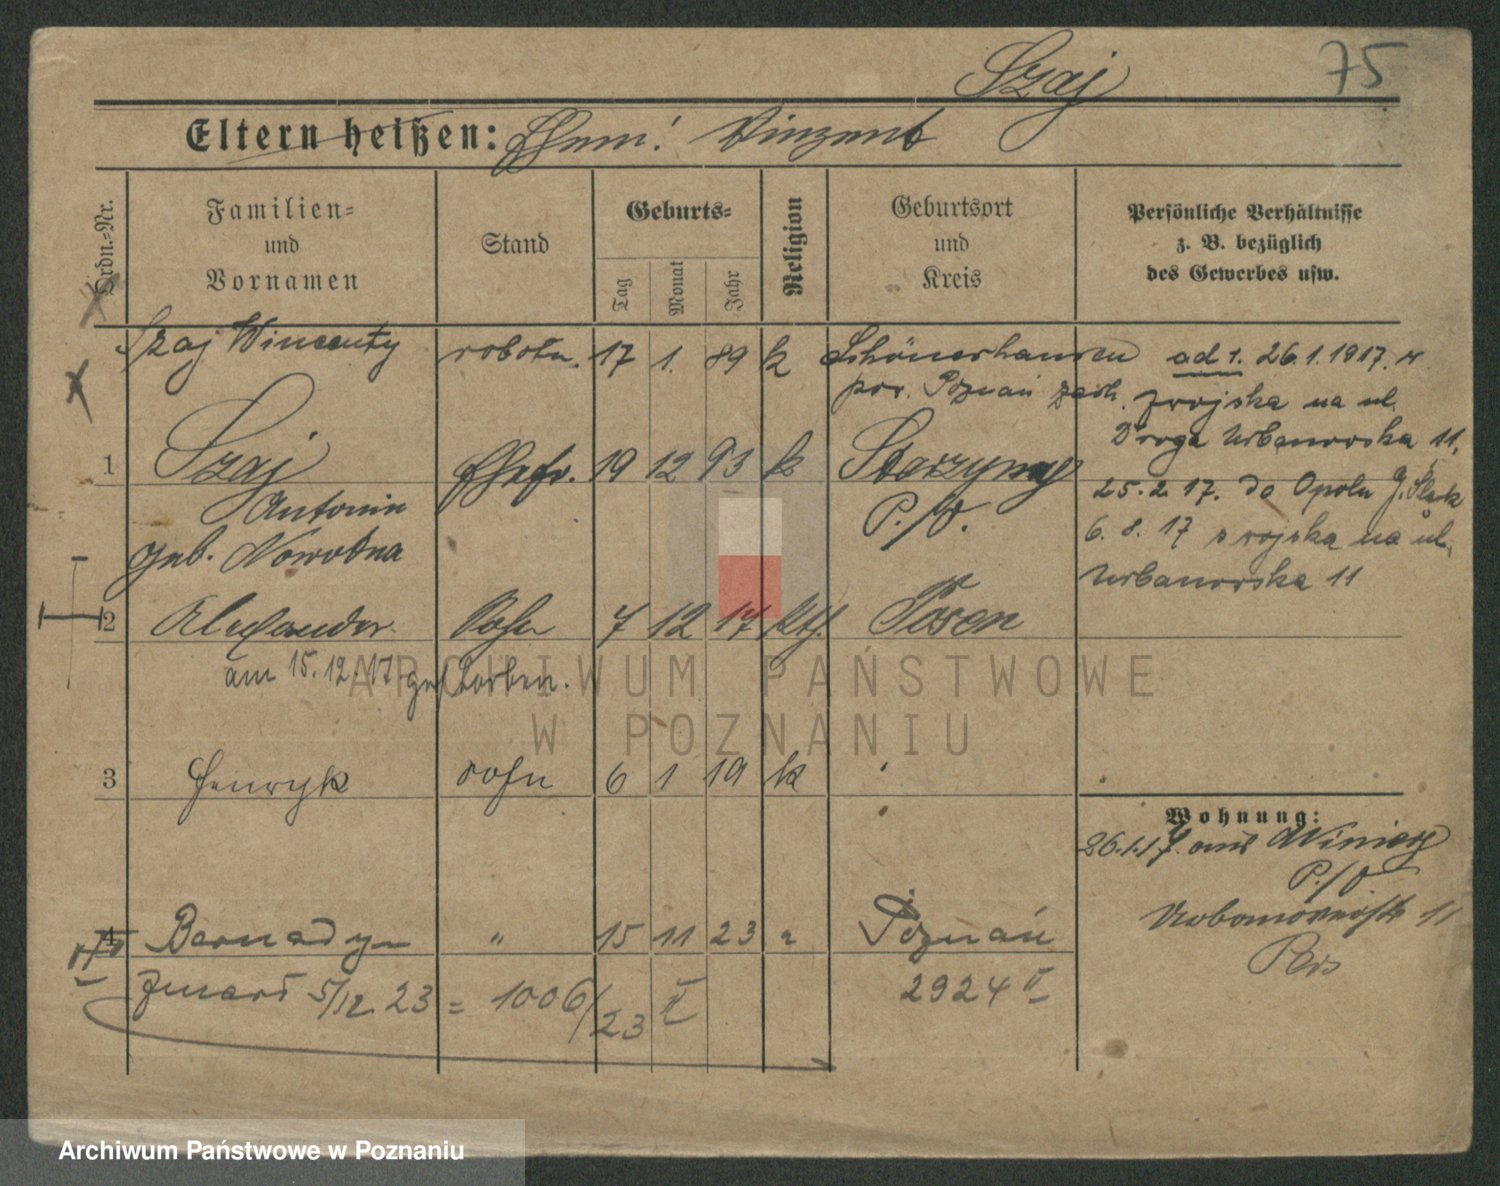 Szaj
75
Eltern heißen: Ehem: Vinzent
Ordn.-Nr.
Familien-
und
Vornamen
Stand
Geburts-
Tag
Monat
Jahr
Religion
Geburtsort
und
Kreis
Persönliche Verhältnisse
z. B. bezüglich
des Gewerbes usw.
Szaj Wincenty robotn. 17 1. 89 k Schönerhausen
pow. Poznań zach.
ad 1. 26.1.1917.
z wojska na ul.
Droga Urbanowska 11.
1 Szaj Ehefr. 19 12 93 k
Antonin
geb. Nowotna
P./O.
25.2.17. do Opola G. Śląsk
6.8.17 z wojska na ul.
Urbanowska 11
2 Alexander Sohn 7 12 17 kth. Posen
am 15.12.17 gestorben.
3 Henryk sohn 6 1 19 k
Wohnung:
26.1.17. aus Winiary
P./O.
11
4 Bernadyn " 15 11 23 " Poznań
zmarł 5/12.23 = 1006/23 II
2924 II
ARCHIWUM PAŃSTWOWE
W POZNANIU
Archiwum Państwowe w Poznaniu